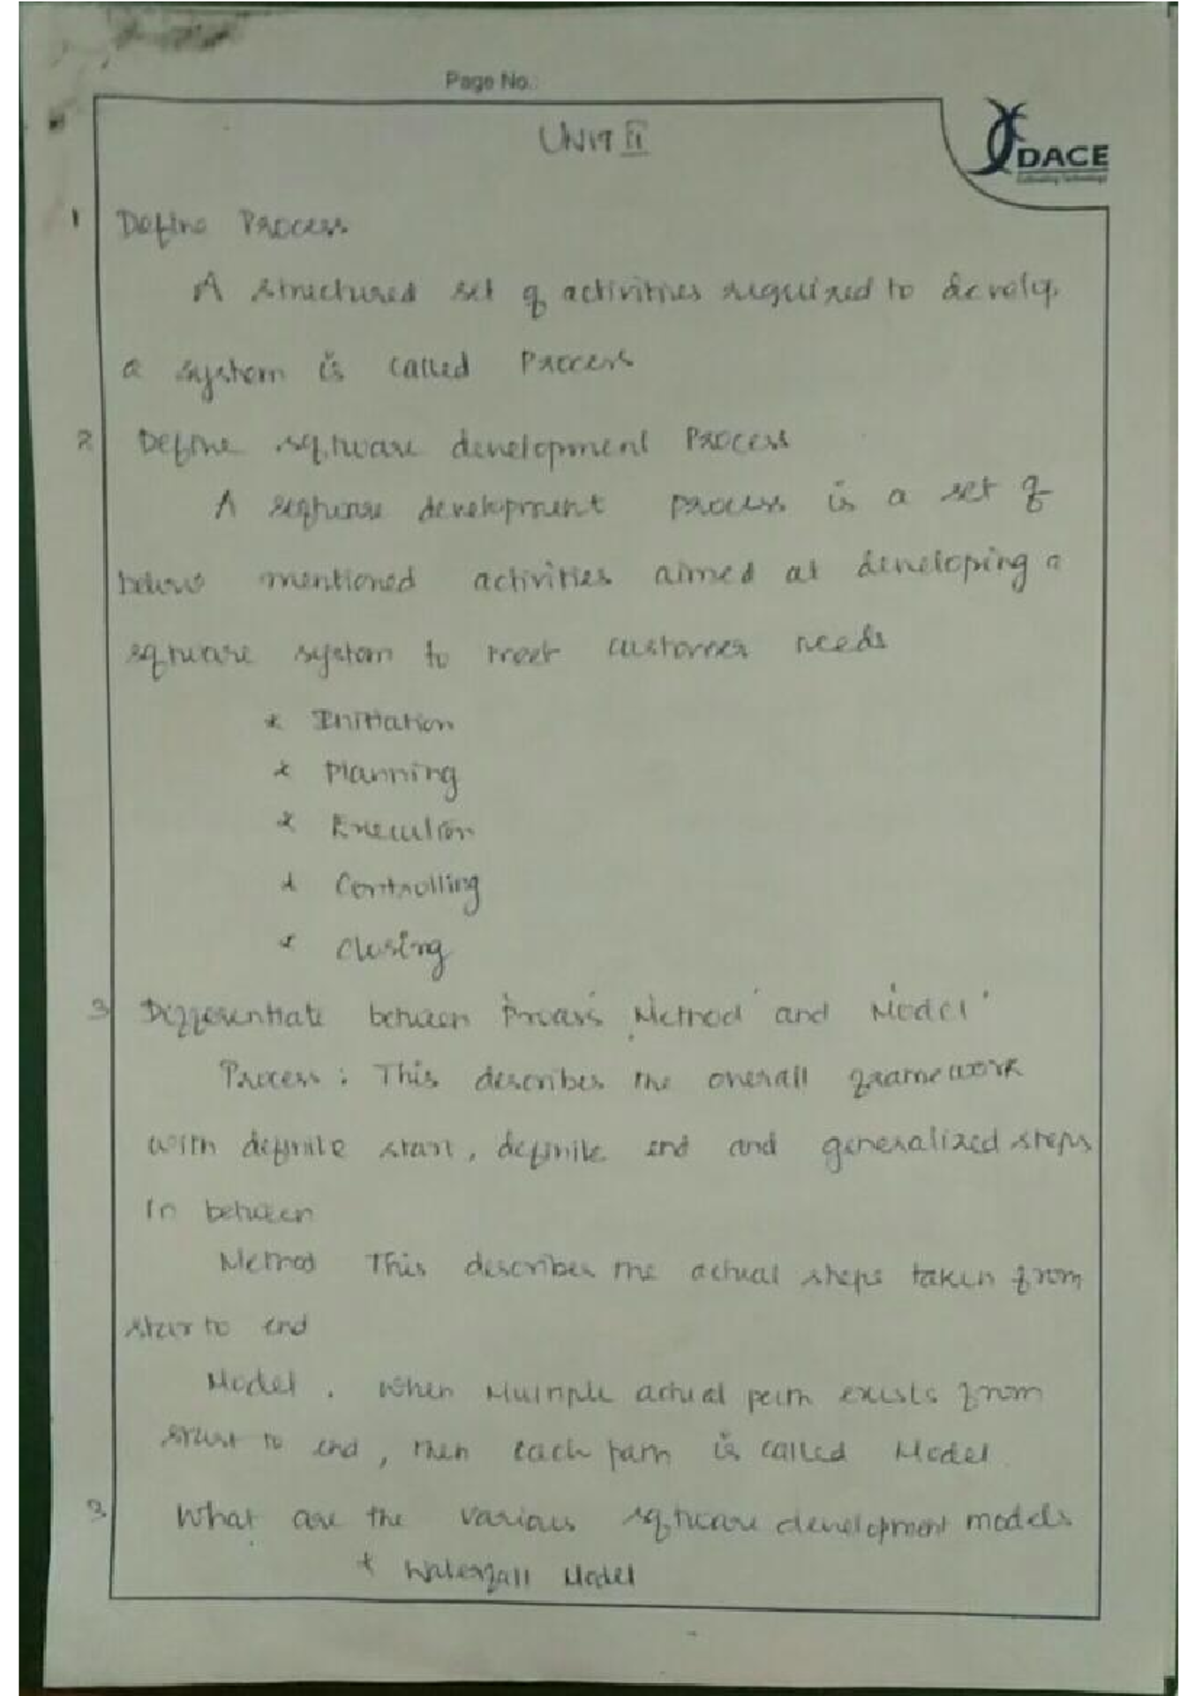 Page No.:
UNIT II
DACE
1 Define Process
A structured set of activities required to develop
a system is called Process
2 Define software development Process
A software development process is a set of
below mentioned activities aimed at developing a
software system to meet customer needs
* Initiation
* Planning
* Execution
* Controlling
* Closing
3 Differentiate between 'Process' 'Method' and 'Model'
Process : This describes the overall framework
with definite start, definite end and generalized steps
In between
Method This describes the actual steps taken from
start to end
Model . When Multiple actual path exists from
start to end, then each path is called Model
3 What are the various software development models
* Waterfall Model